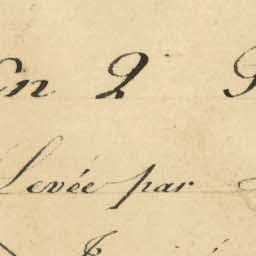 En 2
Levée par